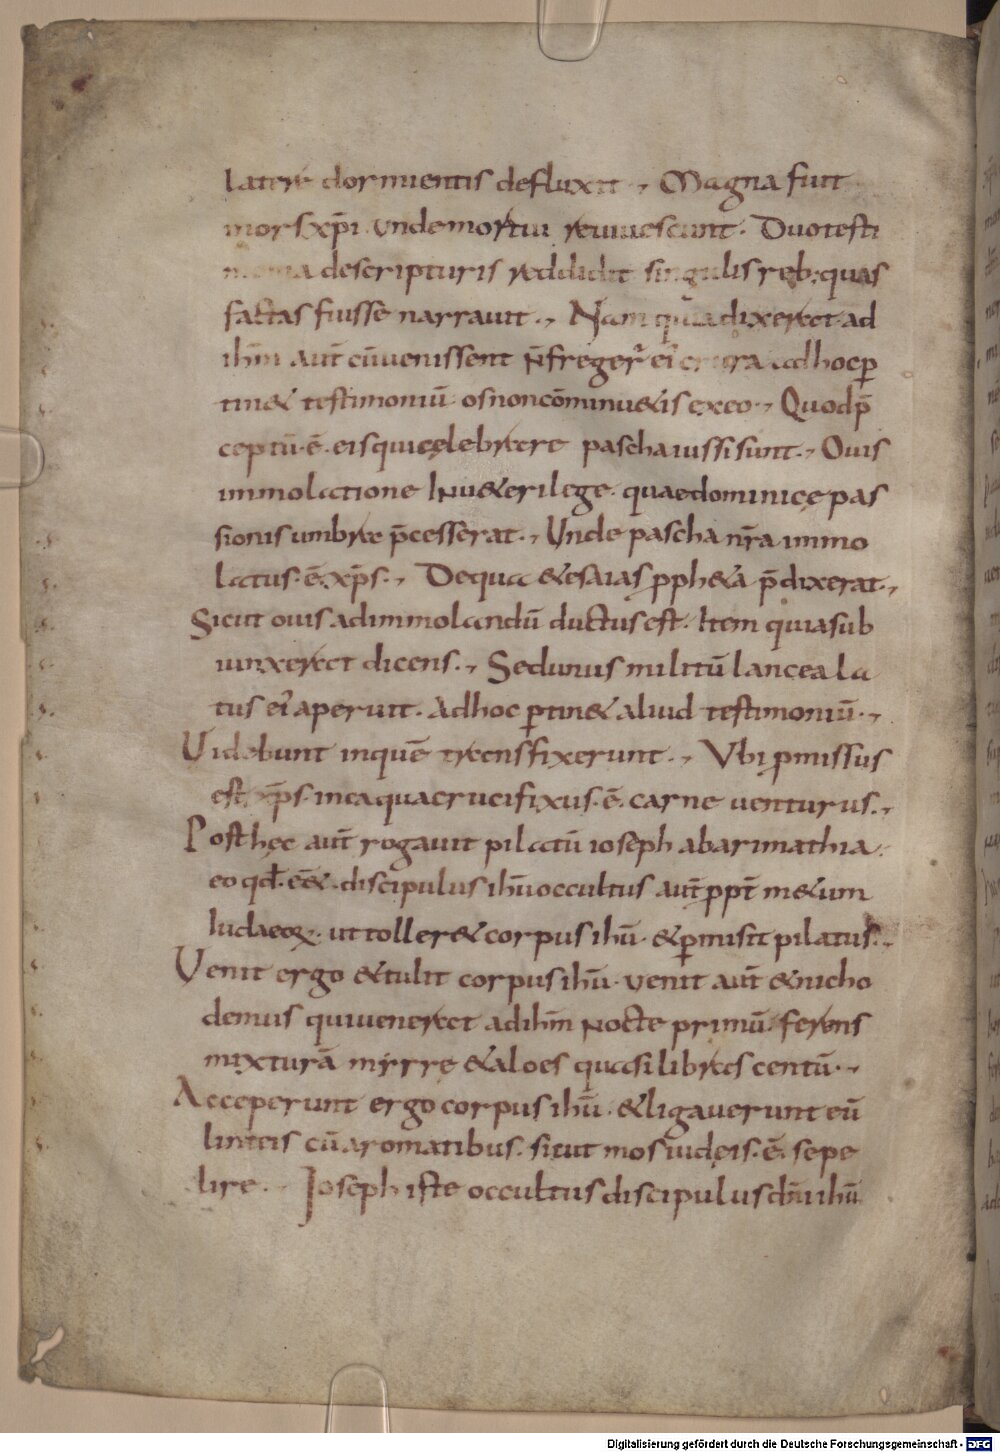 latere dormientis defluxit ., Magna fuit
mors xp̄i. unde mortui reuiuescunt. Duo testi
monia descripturis reddidit singulis reb; quas
factas fuisse narrauit ., Nam quia dixerat ad
ihm̄ aut̄ cū uenissent n̄ freger̄ ei crura ad hoc ꝑ
tin& testimoniū. os non cōminu&is ex eo ., Quod p̄
ceptū .ē. eis qui celebrare pascha iussi sunt ., Ouis
immolatione In u&eri lege. quae dominicę pas
sionis umbra p̄cesserat ., Unde pascha nr̄a immo
latus .ē. xp̄s ., De qua & esaias ꝓph&a p̄dixerat .,
Sicut ouis ad immolandū ductus est. Item quia sub
iunxerat dicens ., Sed unus militū lancea la
tus ei aperuit. Ad hoc ꝑtin& aliud testimoniū .,
Uidebunt inquē transfixerunt ., Vbi ꝓmissus
est xp̄s. in ea qua crucifixus .ē. carne uenturus .,
Post hęc aut̄ rogauit pilatū ioseph ab arimathia.
eo qd̄ .ēē&. discipulus ihū occultus aut̄ ꝓpt̄ m&um
Iudaeoꝝ. ut toller& corpus ihū. & ꝑmisit pilatus .,
Uenit ergo & tulit corpus ihū. uenit aut̄ & nicho
demus qui uenerat ad ihm̄ nocte primū. ferens
mixturā mẏrre & aloes quasi libras centū .,
Acceperunt ergo corpus ihū. & ligauerunt eū
linteis cū aromatibus. sicut mos iudeis .ē. sepe
lire. Ioseph iste occultus discipulus dn̄i ihū
Digitalisierung gefördert durch die Deutsche Forschungsgemeinschaft - DFG